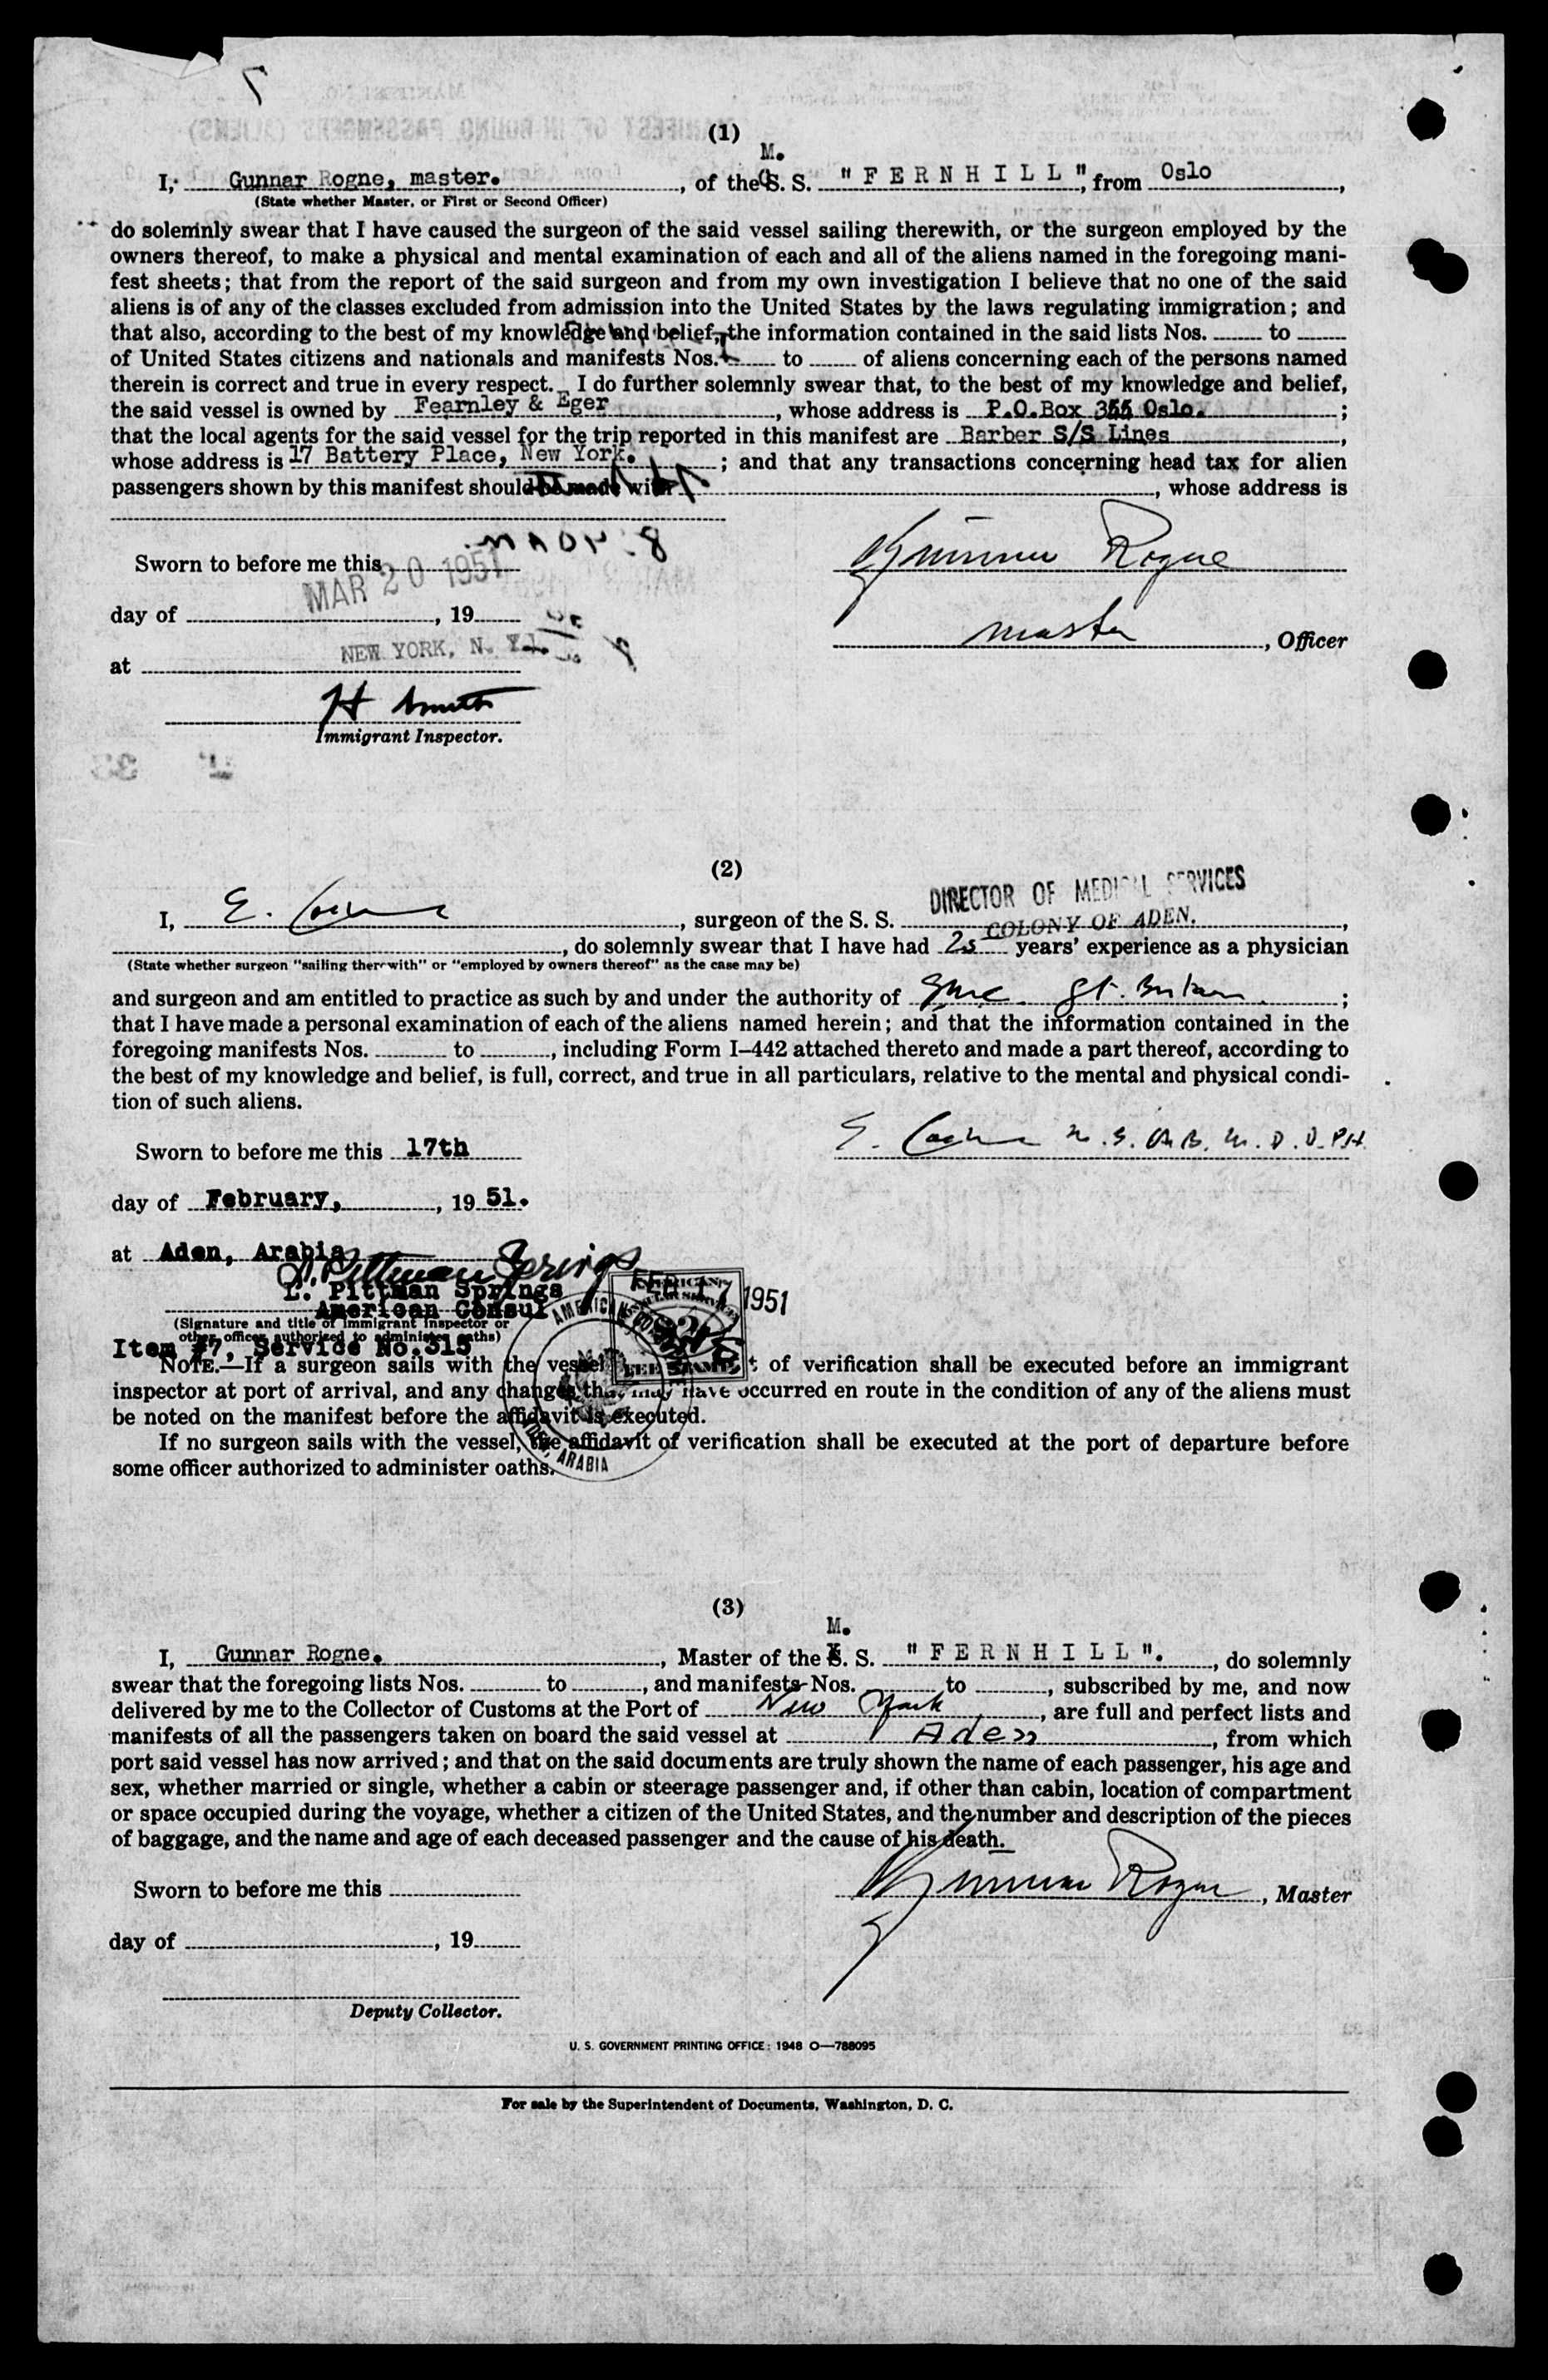 (1)
M.
I, Gunnar Rogne, master. , of the S. S. " F E R N H I L L ", from Oslo ,
(State whether Master, or First or Second Officer)
do solemnly swear that I have caused the surgeon of the said vessel sailing therewith, or the surgeon employed by the
owners thereof, to make a physical and mental examination of each and all of the aliens named in the foregoing mani-
fest sheets; that from the report of the said surgeon and from my own investigation I believe that no one of the said
aliens is of any of the classes excluded from admission into the United States by the laws regulating immigration; and
that also, according to the best of my knowledge and belief, the information contained in the said lists Nos. to
of United States citizens and nationals and manifests Nos. to of aliens concerning each of the persons named
therein is correct and true in every respect. I do further solemnly swear that, to the best of my knowledge and belief,
the said vessel is owned by Fearnley & Eger , whose address is P.O.Box 355 Oslo. ;
that the local agents for the said vessel for the trip reported in this manifest are Barber S/S Lines ,
whose address is 17 Battery Place, New York. ; and that any transactions concerning head tax for alien
passengers shown by this manifest should be made with , whose address is
Sworn to before me this
MAR 20 1951
Gunnar Rogne
day of , 19
master , Officer
at NEW YORK, N. Y.
H Smith
Immigrant Inspector.
(2)
DIRECTOR OF MEDICAL SERVICES
I, E. , surgeon of the S. S. COLONY OF ADEN. ,
, do solemnly swear that I have had 25 years' experience as a physician
(State whether surgeon "sailing therewith" or "employed by owners thereof" as the case may be)
and surgeon and am entitled to practice as such by and under the authority of GMC. Gt. Britain ;
that I have made a personal examination of each of the aliens named herein; and that the information contained in the
foregoing manifests Nos. to , including Form I–442 attached thereto and made a part thereof, according to
the best of my knowledge and belief, is full, correct, and true in all particulars, relative to the mental and physical condi-
tion of such aliens.
Sworn to before me this 17th
day of February, , 19 51.
at Aden, Arabia
L. Pittman Springs
L. Pittman Springs
American Consul
FEB 17 1951
(Signature and title of immigrant inspector or
other officer authorized to administer oaths)
Item #7, Service No.315
NOTE.—If a surgeon sails with the vessel of verification shall be executed before an immigrant
inspector at port of arrival, and any changes that may have occurred en route in the condition of any of the aliens must
be noted on the manifest before the affidavit is executed.
If no surgeon sails with the vessel, the affidavit of verification shall be executed at the port of departure before
some officer authorized to administer oaths.
(3)
M.
I, Gunnar Rogne. , Master of the S. S. " F E R N H I L L ". , do solemnly
swear that the foregoing lists Nos. to , and manifests Nos. to , subscribed by me, and now
delivered by me to the Collector of Customs at the Port of New York , are full and perfect lists and
manifests of all the passengers taken on board the said vessel at Aden , from which
port said vessel has now arrived; and that on the said documents are truly shown the name of each passenger, his age and
sex, whether married or single, whether a cabin or steerage passenger and, if other than cabin, location of compartment
or space occupied during the voyage, whether a citizen of the United States, and the number and description of the pieces
of baggage, and the name and age of each deceased passenger and the cause of his death.
Sworn to before me this
Gunnar Rogne , Master
day of , 19
Deputy Collector.
U. S. GOVERNMENT PRINTING OFFICE: 1948 O—788095
For sale by the Superintendent of Documents, Washington, D. C.